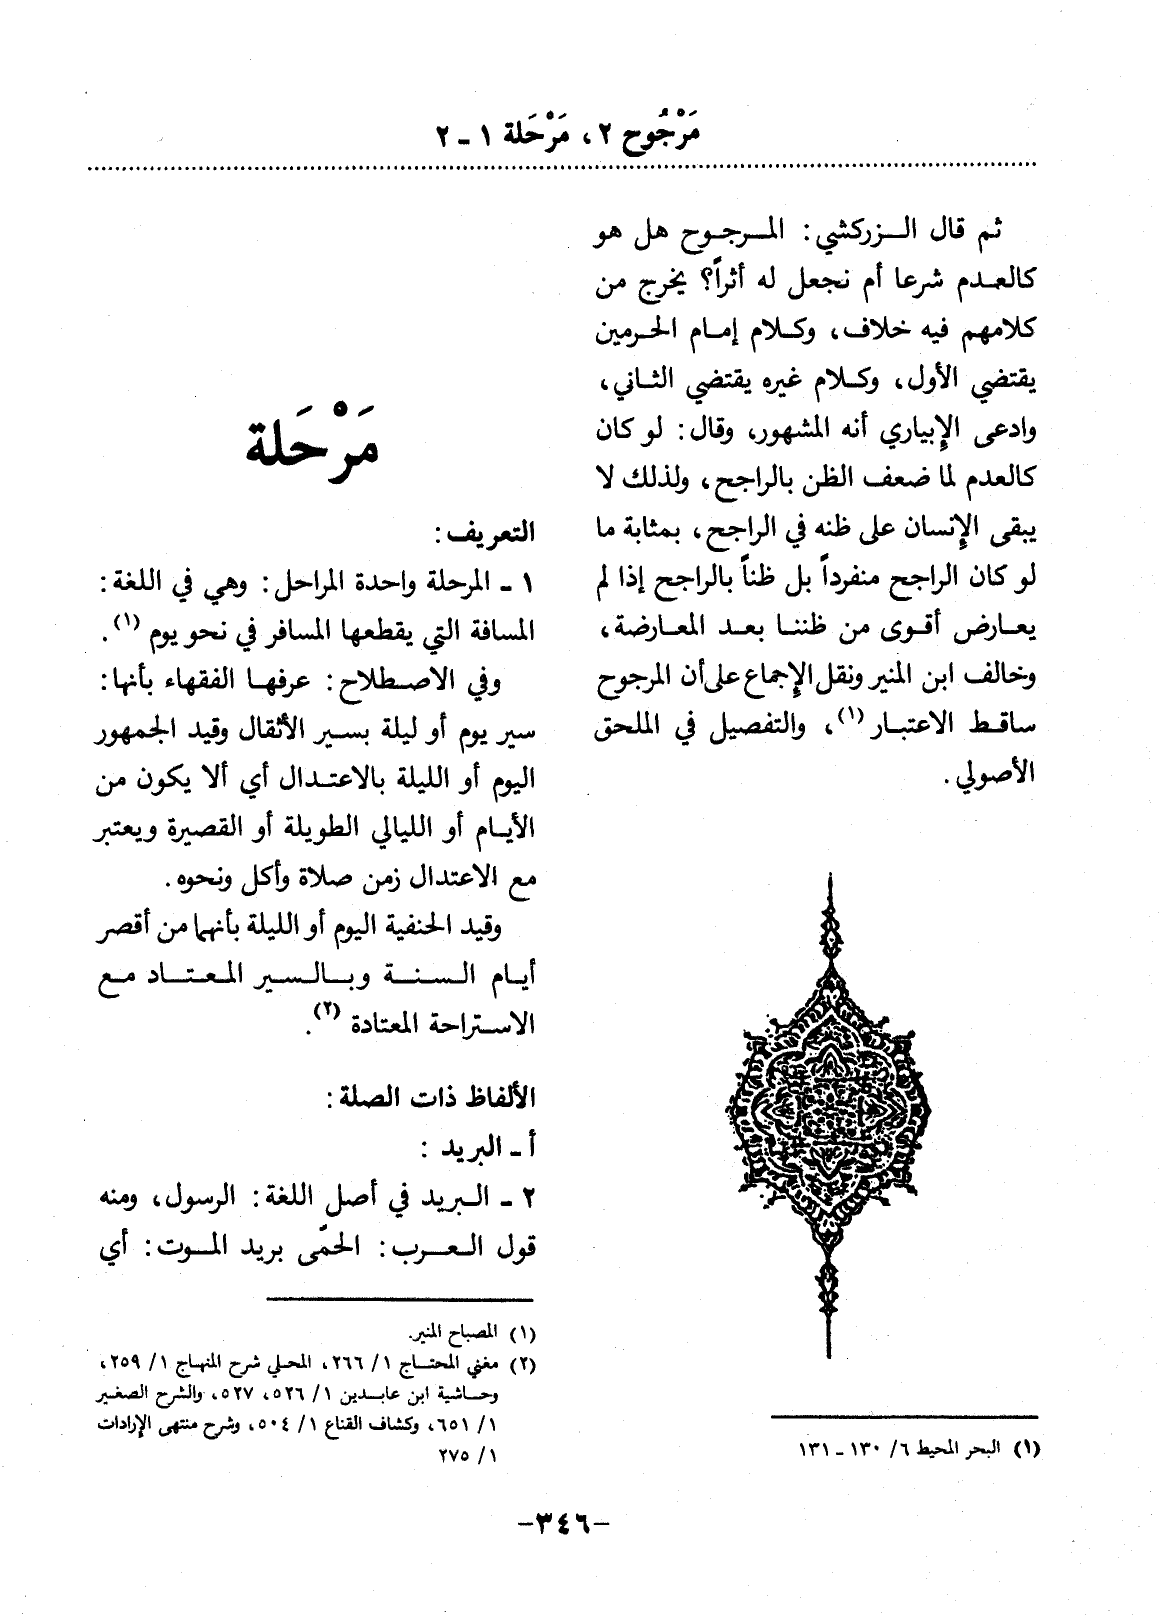 مَرْجُوح ٢، مَرْحَلة ١ ـ ٢
ثم قال الزركشي: المرجوح هل هو
كالعدم شرعا أم نجعل له أثراً؟ يخرج من
كلامهم فيه خلاف، وكلام إمام الحرمين
يقتضي الأول، وكلام غيره يقتضي الثاني،
وادعى الإبياري أنه المشهور، وقال: لو كان
كالعدم لما ضعف الظن بالراجح، ولذلك لا
يبقى الإنسان على ظنه في الراجح، بمثابة ما
لو كان الراجح منفرداً بل ظناً بالراجح إذا لم
يعارض أقوى من ظننا بعد المعارضة،
وخالف ابن المنير ونقل الإجماع على أن المرجوح
ساقط الاعتبار (١)، والتفصيل في الملحق
الأصولي.
(١) البحر المحيط ٦/ ١٣٠ ـ ١٣١
مَرْحَلة
التعريف:
١ ـ المرحلة واحدة المراحل: وهي في اللغة:
المسافة التي يقطعها المسافر في نحو يوم (١).
وفي الاصطلاح: عرفها الفقهاء بأنها:
سير يوم أو ليلة بسير الأثقال وقيد الجمهور
اليوم أو الليلة بالاعتدال أي ألا يكون من
الأيام أو الليالي الطويلة أو القصيرة ويعتبر
مع الاعتدال زمن صلاة وأكل ونحوه.
وقيد الحنفية اليوم أو الليلة بأنهما من أقصر
أيام السنة وبالسير المعتاد مع
الاستراحة المعتادة (٢).
الألفاظ ذات الصلة:
أ ـ البريد :
٢ ـ البريد في أصل اللغة: الرسول، ومنه
قول العرب: الحمّى بريد الموت: أي
(١) المصباح المنير.
(٢) مغني المحتاج ١/ ٢٦٦، المحلي شرح المنهاج ١/ ٢٥٩،
وحاشية ابن عابدين ١/ ٥٢٦، ٥٢٧، والشرح الصغير
١/ ٦٥١، وكشاف القناع ١/ ٥٠٤، وشرح منتهى الإرادات
١/ ٢٧٥
-٣٤٦-